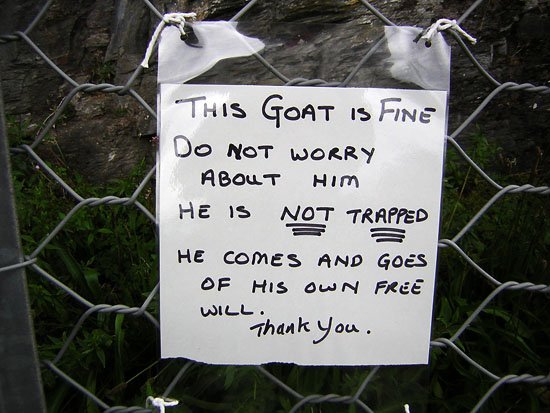 THIS GOAT IS FINE
DO NOT WORRY
ABOUT HIM
HE IS NOT TRAPPED
HE COMES AND GOES
OF HIS OWN FREE
WILL.
Thank You.